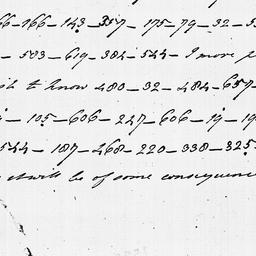 66-166-143-357-175-79-32-5
- 583-619-384-544- I more p
to know 480-32-484-657-
- 105-606-227-606-19-19
544-187-468-220-338-325
it will be of some consequenc